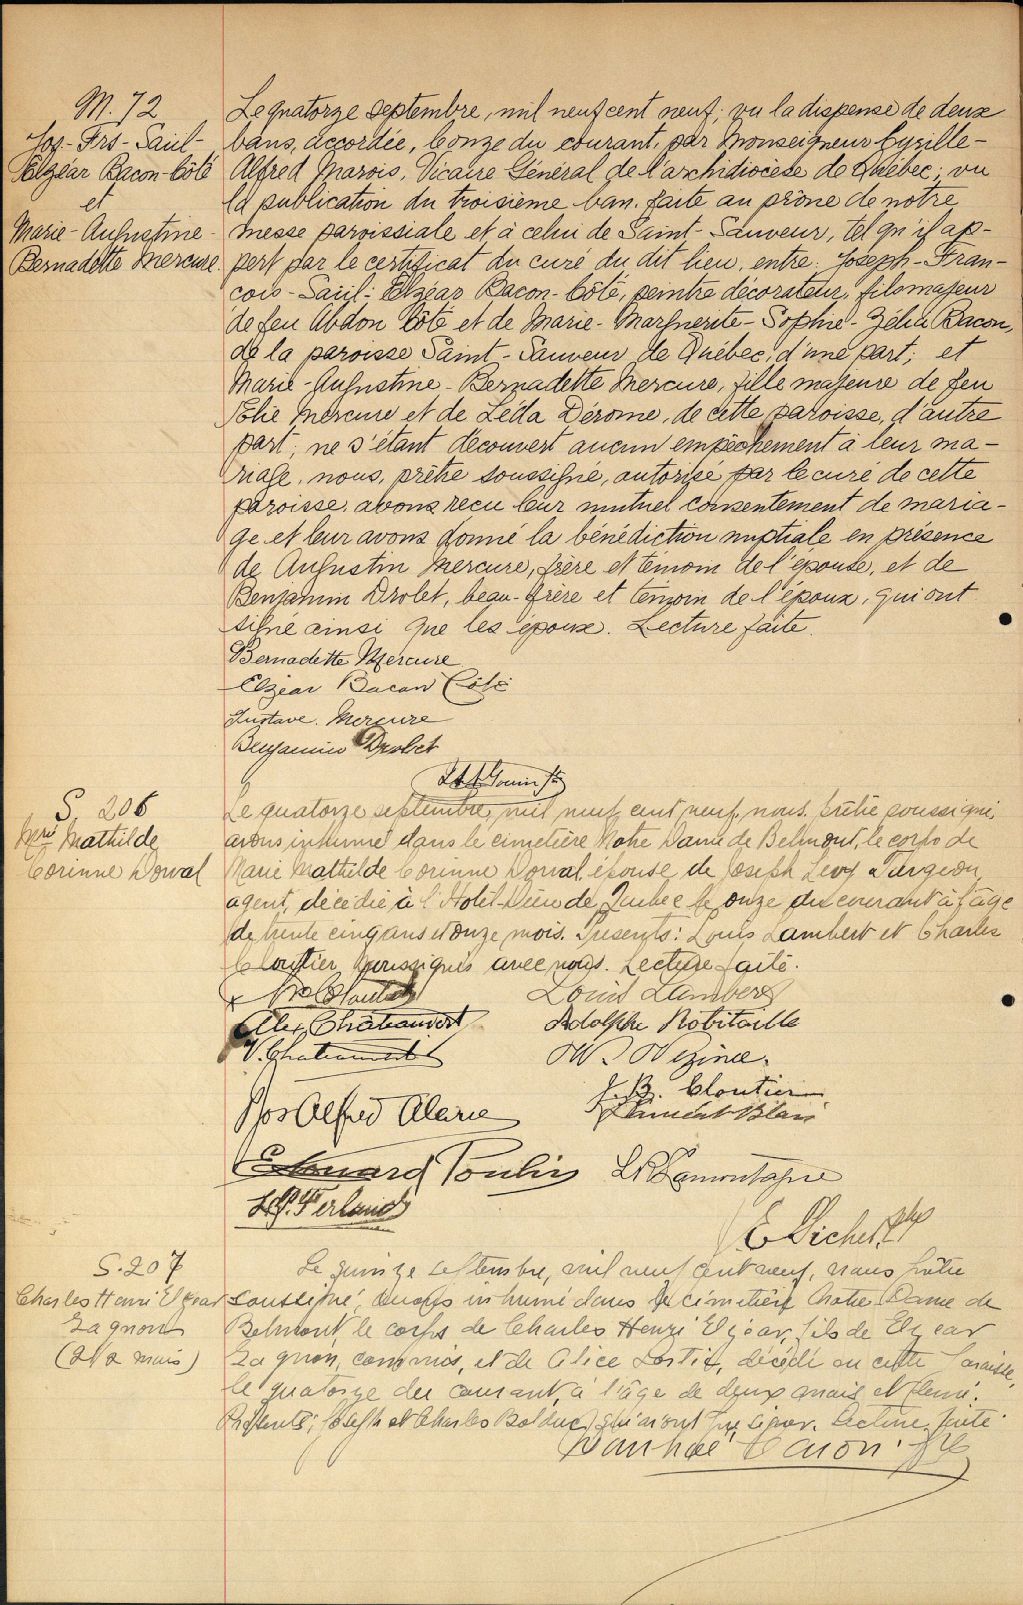 M. 72
Jos-Frs-Saül-
Elzéar Bacon-Côté
et
Marie-Augustine-
Bernadette Mercure.
Le quatorze septembre, mil neuf cent neuf; vu la dispense de deux
bans, accordée, le onze du courant, par Monseigneur Cyrille-
Alfred Marois, Vicaire Général de l'archidiocèse de Québec; vu
la publication du troisième ban, faite au prône de notre
messe paroissiale et à celui de Saint-Sauveur, tel qu'il ap-
pert par le certificat du curé du dit lieu, entre Joseph-Fran-
cois-Saül-Elzéar Bacon-Côté, peintre décorateur, fils majeur
de feu Abdon Côté et de Marie-Marguerite-Sophie-Zélia Bacon,
de la paroisse Saint-Sauveur de Québec, d'une part; et
Marie-Augustine-Bernadette Mercure, fille majeure de feu
Elie Mercure et de Léda Dérome, de cette paroisse, d'autre
part; ne s'étant découvert aucun empêchement à leur ma-
riage, nous, prêtre soussigné, autorisé par le curé de cette
paroisse, avons reçu leur mutuel consentement de maria-
ge et leur avons donné la bénédiction nuptiale en présence
de Augustin Mercure, frère et témoin de l'épouse, et de
Benjamin Drolet, beau-frère et témoin de l'époux, qui ont
signé ainsi que les époux. Lecture faite.
Bernadette Mercure
Elzéar Bacon Côté
Gustave. Mercure
Benjamin Drolet
Gouin
S. 206
Marie Mathilde
Corinne Dorval
Le quatorze septembre, mil neuf cent neuf, nous, prêtre soussigné,
avons inhumé dans le cimetière Notre Dame de Belmont, le corps de
Marie Mathilde Corinne Dorval, épouse de Joseph Levy Turgeon,
agent, décédée à l'Hotel-Dieu de Québec le onze du courant à l'âge
de trente cinq ans et onze mois. Présents: Louis Lambert et Charles
Cloutier soussignés avec nous. Lecture faite.
Cloutier Louis Lambert
Alex. Chateauvert Adolphe Robitaille
V. Chateauvert W. Vezina.
J. B. Cloutier
Jos Alfred Alarie Blais
Edouard Poulin L R Lamontagne
Ferland
E Pichet ptre
S. 207
Charles Henri Elzéar
Gagnon
(2 1/2 mois)
Le quinze septembre, mil neuf cent neuf, nous prêtre
soussigné, avons inhumé dans le cimetière Notre Dame de
Belmont, le corps de Charles Henri Elzéar, fils de Elzéar
Gagnon, commis, et de Alice Lortie, décédé en cette paroisse,
le quatorze du courant, à l'âge de deux mois et demi.
Présents; Joseph et Charles Bolduc, qui n'ont pu signer. Lecture faite.
Caron ptre